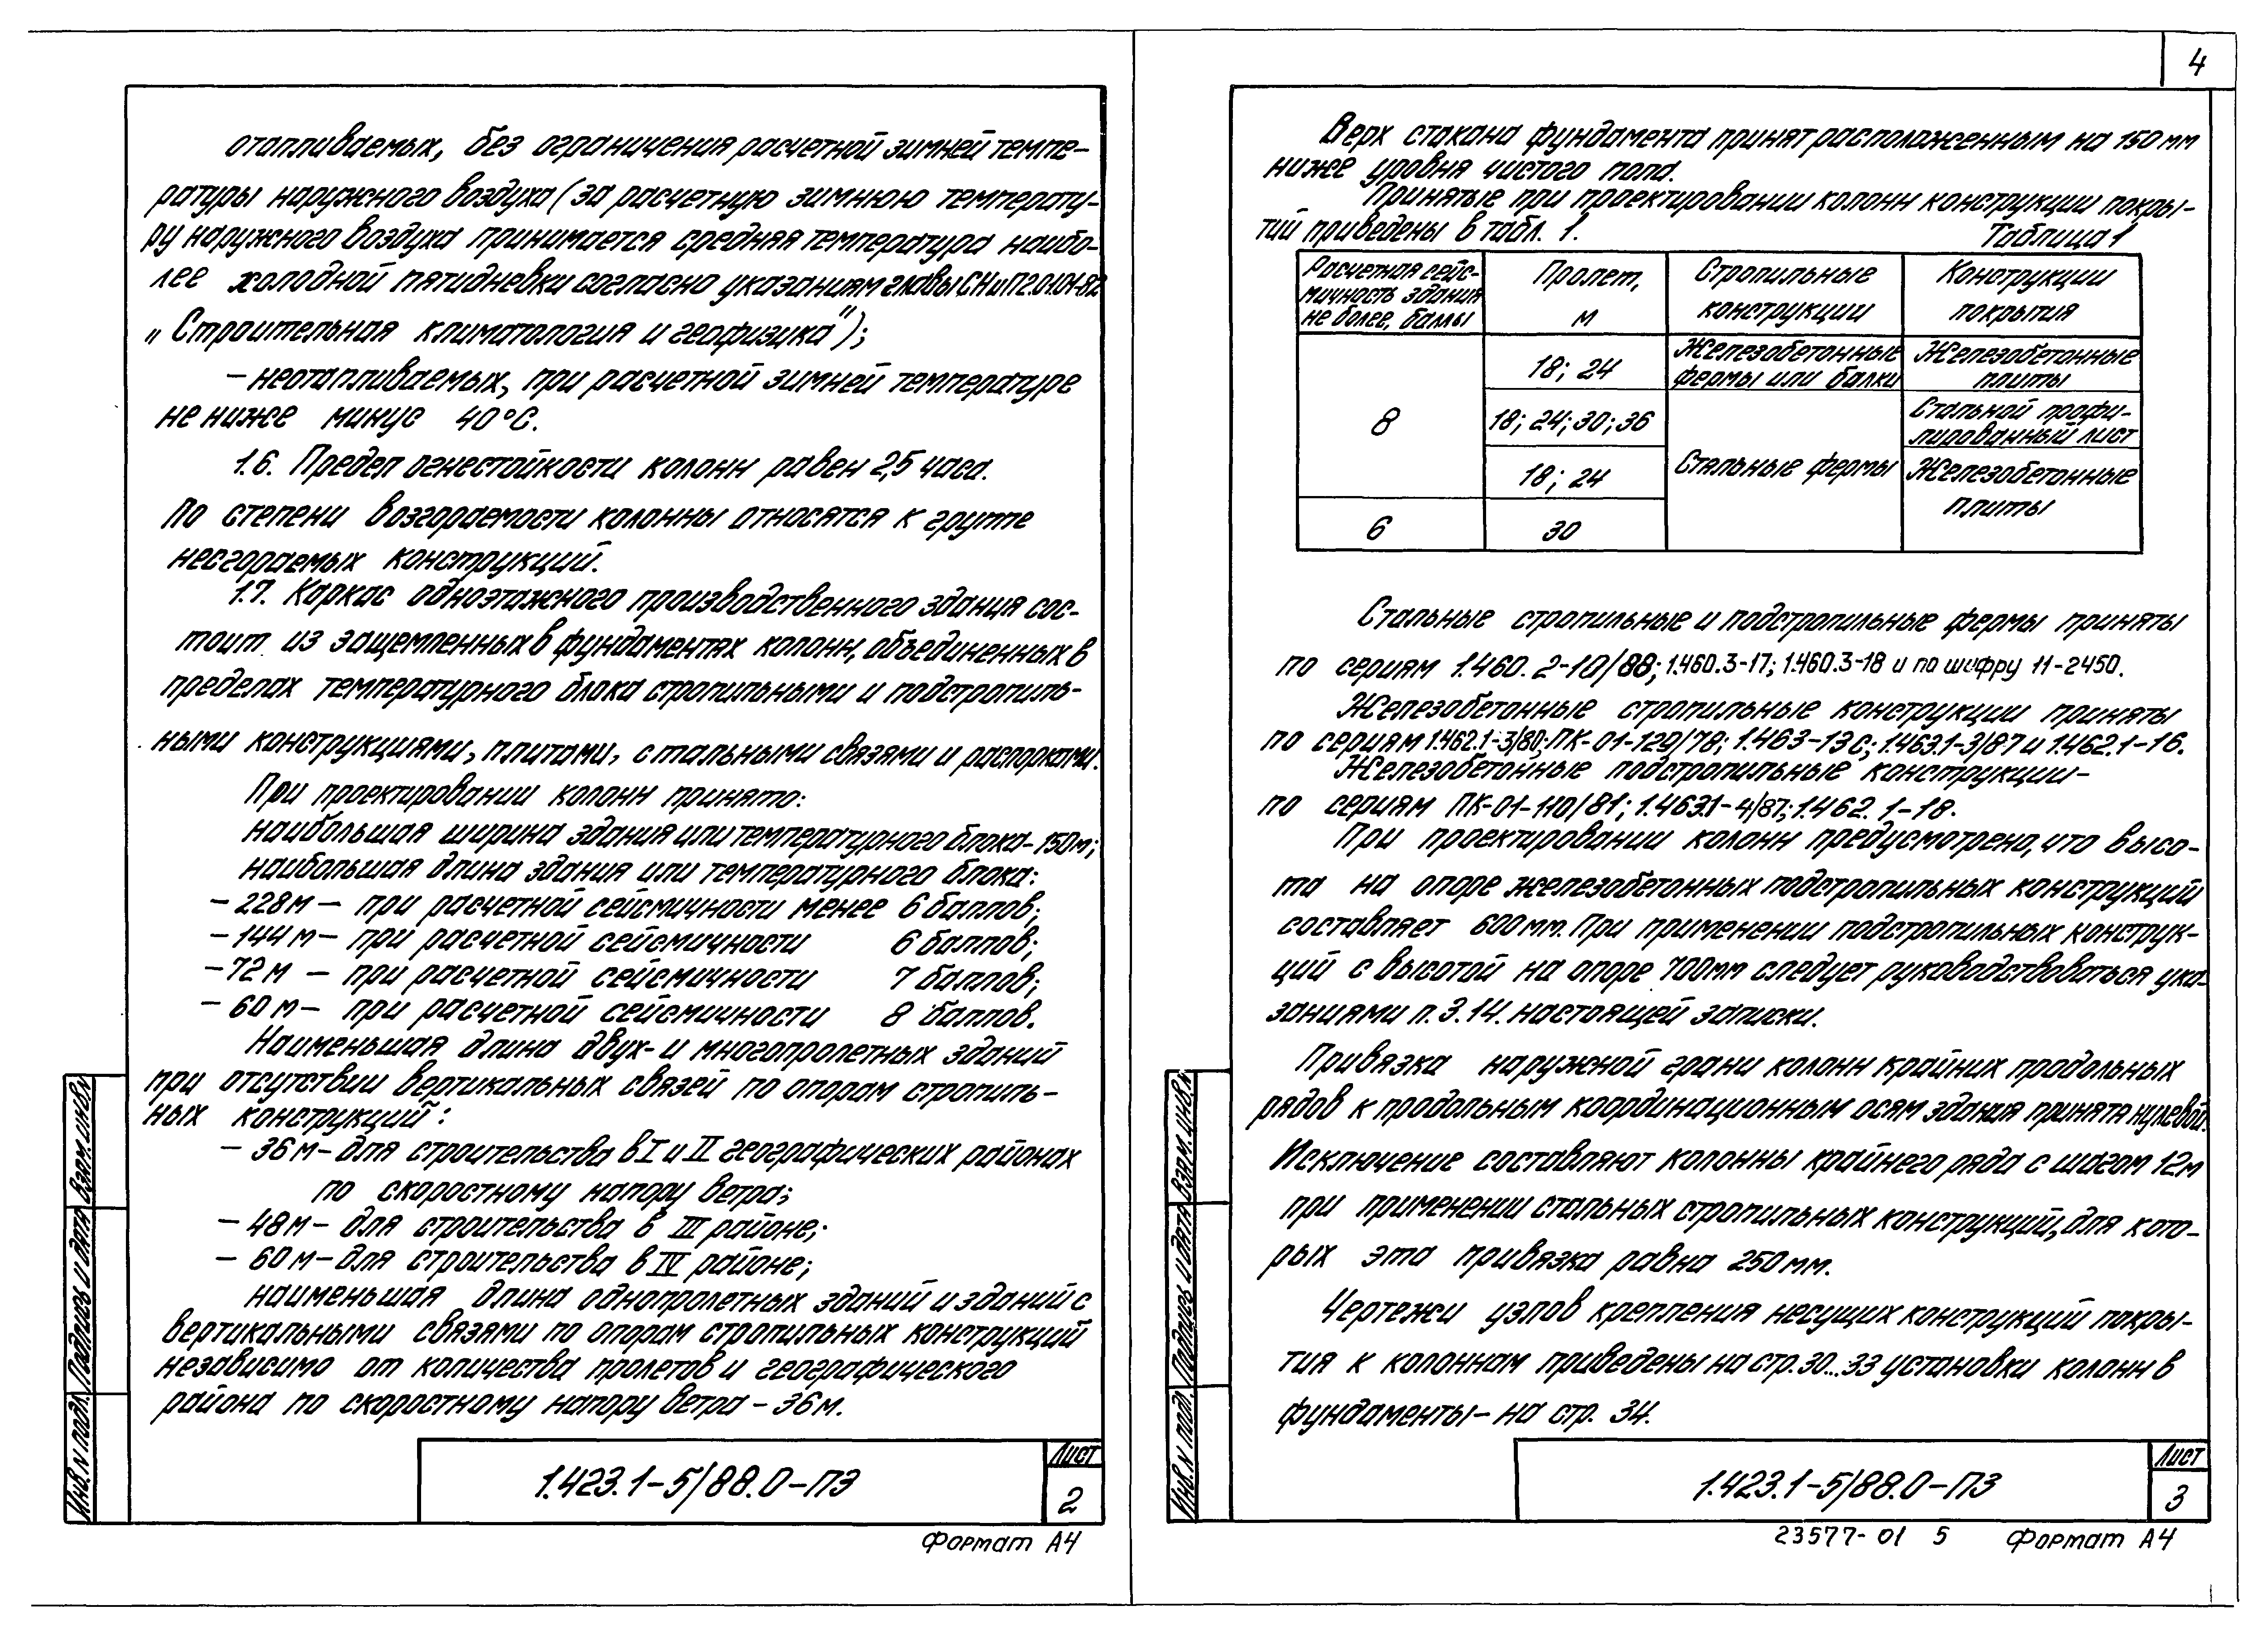 отапливаемых, без ограничения расчетной зимней темпе-
ратуры наружного воздуха (за расчетную зимнюю температу-
ру наружного воздуха принимается средняя температура наибо-
лее холодной пятидневки согласно указаниям главы СНиП 2.01.01-82
„Строительная климатология и геофизика");
– неотапливаемых, при расчетной зимней температуре
не ниже минус 40°С.
1.6. Предел огнестойкости колонн равен 2,5 часа.
По степени возгораемости колонны относятся к группе
несгораемых конструкций.
1.7. Каркас одноэтажного производственного здания сос-
тоит из защемленных в фундаментах колонн, объединенных в
пределах температурного блока стропильными и подстропиль-
ными конструкциями, плитами, стальными связями и распорками.
При проектировании колонн принято:
наибольшая ширина здания или температурного блока – 150м;
наибольшая длина здания или температурного блока:
– 228м – при расчетной сейсмичности менее 6 баллов;
– 144м – при расчетной сейсмичности 6 баллов;
– 72м – при расчетной сейсмичности 7 баллов;
– 60м – при расчетной сейсмичности 8 баллов.
Наименьшая длина двух- и многопролетных зданий
при отсутствии вертикальных связей по опорам стропиль-
ных конструкций:
– 36м – для строительства в I и II географических районах
по скоростному напору ветра;
– 48м – для строительства в III районе;
– 60м – для строительства в IV районе;
наименьшая длина однопролетных зданий и зданий с
вертикальными связями по опорам стропильных конструкций
независимо от количества пролетов и географического
района по скоростному напору ветра – 36м.
Инв.N подл. Подпись и дата Взам.инв.N
1.423.1-5/88.0-ПЗ
Лист
2
Формат А4
4
Верх стакана фундамента принят расположенным на 150мм
ниже уровня чистого пола.
Принятые при проектировании колонн конструкции покры-
тий приведены в табл. 1.
Таблица 1
Расчетная сейс-
мичность здания
не более, баллы
Пролет,
м
Стропильные
конструкции
Конструкции
покрытия
8
18; 24
Железобетонные
фермы или балки
Железобетонные
плиты
18; 24; 30; 36
Стальной профи-
лированный лист
18; 24
Стальные фермы
Железобетонные
плиты
6
30
Стальные стропильные и подстропильные фермы приняты
по сериям 1.460.2-10/88; 1.460.3-17; 1.460.3-18 и по шифру 11-2450.
Железобетонные стропильные конструкции приняты
по сериям 1.462.1-3/80; ПК-01-129/78; 1.463-13с; 1.463.1-3/87 и 1.462.1-16.
Железобетонные подстропильные конструкции –
по сериям ПК-01-110/81; 1.463.1-4/87; 1.462.1-18.
При проектировании колонн предусмотрено, что высо-
та на опоре железобетонных подстропильных конструкций
составляет 600мм. При применении подстропильных конструк-
ций с высотой на опоре 700мм следует руководствоваться ука-
заниями п. 3.14. настоящей записки.
Привязка наружной грани колонн крайних продольных
рядов к продольным координационным осям здания принята нулевой.
Исключение составляют колонны крайнего ряда с шагом 12м
при применении стальных стропильных конструкций, для кото-
рых эта привязка равна 250мм.
Чертежи узлов крепления несущих конструкций покры-
тия к колоннам приведены на стр. 30...33 установки колонн в
фундаменты – на стр. 34.
Инв.N подл. Подпись и дата Взам.инв.N
1.423.1-5/88.0-ПЗ
Лист
3
23577-01 5 Формат А4